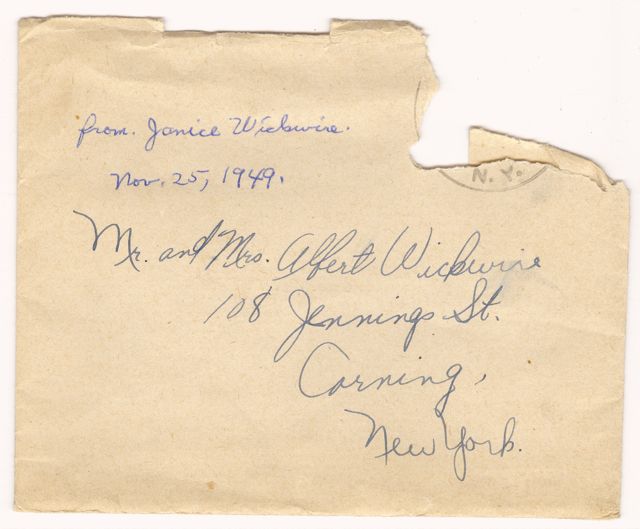 from. Janice Wickwire.
Nov. 25, 1949.
N. Y.
Mr. and Mrs. Albert Wickwire
108 Jennings St.
Corning,
New York.